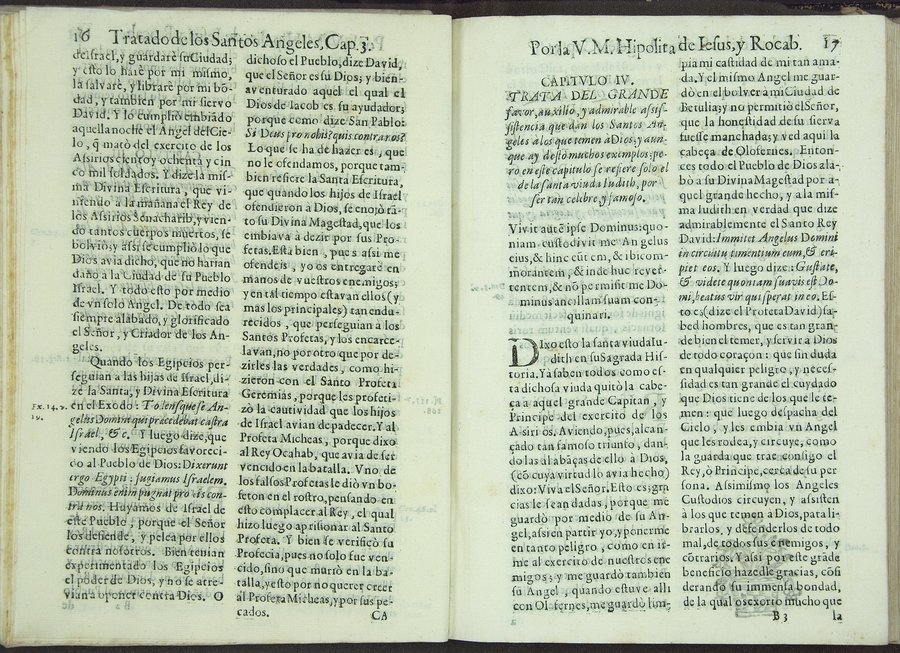 16 Tratado de los Santos Angeles, Cap. 3.
de Israel, y guardarè su Ciudad;
y esto lo harè por mi mismo,
la salvarè, y librarè por mi bo-
dad, y tambien por mi siervo
David. Y lo cumpliò embiãdo
aquella noche el Angel del Cie-
lo, q̃ matò del exercito de los
Assirios ciento y ochenta y cin
co mil soldados. Y dize la mis-
ma Divina Escritura, que vi-
niendo à la mañana el Rey de
los Assirios Senacharib, y vien-
do tantos cuerpos muertos, se
bolviò; y assi se cumpliò lo que
Dios avia dicho, que no harian
daño a la Ciudad de su Pueblo
Israel. Y todo esto por medio
de vn solo Angel. De todo sea
siempre alabado, y glorificado
el Señor, y Criador de los An-
geles.
Quando los Egipcios per-
seguian a las hijas de Israel, di-
ze la Santa, y Divina Escritura
en el Exodo: Tollensque se An-
gelus Domini qui præcedebat castra
Israel, &c. Y luego dize, que
viendo los Egipcios favoreci-
do al Pueblo de Dios: Dixerunt
ergo Egypti: fugiamus Israelem.
Dominus enim pugnat pro eis con-
tra nos. Huyamos de Israel de
este Pueblo, porque el Señor
los defiende, y pelea por ellos
contra nosotros. Bien tenian
experimentado los Egipcios
el poder de Dios, y no se atre-
vian a oponer contra Dios. O
Ex. 14. v.
19.
dichoso el Pueblo, dize David,
que el Señor es su Dios; y bien-
aventurado aquel el qual el
Dios de Iacob es su ayudador;
porque como dize San Pablo:
Si Deus pro nobis? quis contra nos?
Lo que se ha de hazer es, que
no le ofendamos, porque tam-
bien refiere la Santa Escritura,
que quando los hijos de Israel
ofendieron a Dios, se enojò tã-
to su Divina Magestad, que los
embiava à dezir por sus Pro-
fetas. Està bien, pues assi me
ofendeis, yo os entregarè en
manos de vuestros enemigos;
y en tal tiempo estavan ellos (y
mas los principales) tan endu-
recidos, que perseguian a los
Santos Profetas, y los encarce-
lavan, no por otro que por de-
zirles las verdades, como hi-
zieron con el Santo Profeta
Geremias, porque les profeti-
zò la cautividad que los hijos
de Israel avian de padecer. Y al
Profeta Micheas, porque dixo
al Rey Ocahab, que avia de ser
vencido en la batalla. Vno de
los falsos Profetas le diò vn bo-
feton en el rostro, pensando en
esto complacer al Rey, el qual
hizo luego aprisionar al Santo
Profeta. Y bien se verificò su
Profecia, pues no solo fue ven-
cido, sino que muriò en la ba-
talla, y esto por no querer creer
al Profeta Micheas, y por sus pe-
cados.
CA
Por la V. M. Hipolita de Iesus, y Rocab. 17
CAPITVLO IV.
TRATA DEL GRANDE
favor, auxilio, y admirable assis-
sistencia que dan los Santos An-
geles à los que temen à Dios; y aun-
que ay desto muchos exemplos; pe-
ro en este capitulo se refiere solo el
de la santa viuda Iudith, por
ser tan celibre, y famoso.
Vivit autẽ ipse Dominus: quo-
niam custodivit me Angelus
eius, & hinc eũtem, & ibi com-
morantem, & inde huc rever-
tentem, & nõ permisit me Do-
minus ancillam suam con-
quinari.
DIxo esto la santa viuda Iu-
dith en su Sagrada His-
toria. Ya saben todos como es-
ta dichosa viuda quitò la cabe-
ça a aquel grande Capitan, y
Principe del exercito de los
Asirios. Aviendo, pues, alcan-
çado tan famoso triunfo, dan-
do las alabãças de ello à Dios,
(cõ cuya virtud lo avia hecho)
dixo: Viva el Señor. Esto es; gra-
cias le sean dadas, porque me
guardò por medio de su An-
gel, assi en partir yo, y ponerme
en tanto peligro, como en ir-
me al exercito de nuestros ene
migos; y me guardò tambien
su Angel, quando estuve alli
con Olofernes, me guardò lim-
pia mi castidad de mi tan ama-
da. Y el mismo Angel me guar-
dò en el bolver a mi Ciudad de
Betulia; y no permitiò el Señor,
que la honestidad de su sierva
fuesse manchada; y ved aqui la
cabeça de Olofernes. Enton-
ces todo el Pueblo de Dios ala-
bò a su Divina Magestad por a-
quel grande hecho, y a la mis-
ma Iudith en verdad que dize
admirablemente el Santo Rey
David: Immitet Angelus Domini
in circuitu timentium eum, & eri-
piet eos. Y luego dize: Gustate,
& videte quoniam suavis est Do-
mi, beatus vir qui sperat in eo. Es-
to es (dize el Profeta David) sa-
bed hombres, que es tan gran-
de bien el temer, y servir a Dios
de todo coraçon: que sin duda
en qualquier peligro, y neces-
sidad es tan grande el cuydado
que Dios tiene de los que le te-
men: que luego despacha del
Cielo, y les embia vn Angel
que les rodea, y circuye, como
la guarda que trae consigo el
Rey, ò Principe, cerca de su per
sona. Assimismo los Angeles
Custodios circuyen, y assisten
à los que temen a Dios, para li-
brarlos, y defenderlos de todo
mal, de todos sus enemigos, y
cõtrarios. Y assi por este grãde
beneficio hazedle gracias, cõsi
derando su immensa bondad,
de la qual os exorto mucho que
B 3 la